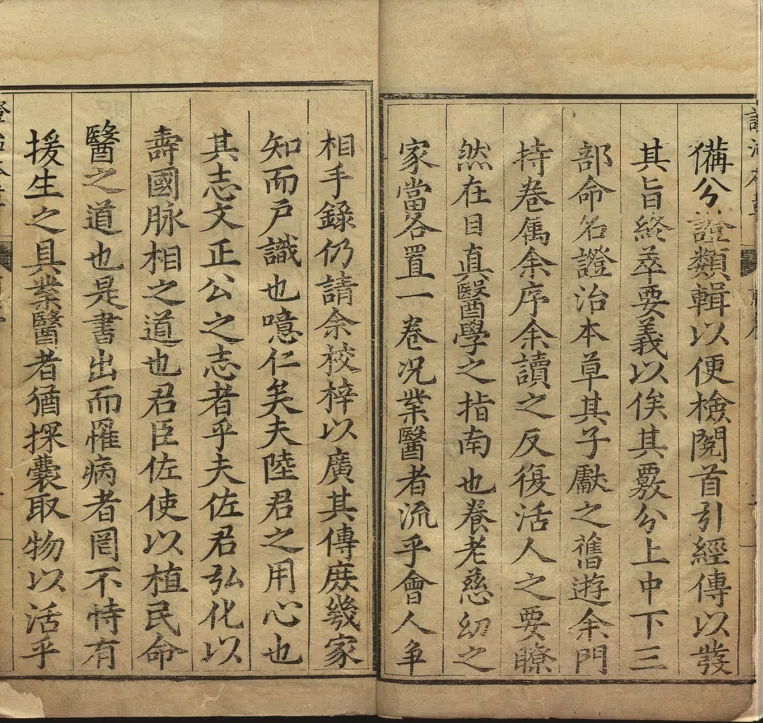 備分證類輯以便檢閱首引經傳以發
其旨終萃要義以俟其覈分上中下三
部命名證治本草其子獻之舊遊余門
持卷属余序余讀之反復活人之要瞭
然在目真醫學之指南也養老慈幼之
家當各置一卷况業醫者流乎會人争
相手錄仍請余校梓以廣其傳庶幾家
知而戶識也噫仁矣夫陸君之用心也
其志文正公之志者乎夫佐君弘化以
壽國脉相之道也君臣佐使以植民命
醫之道也是書出而罹病者罔不恃有
援生之具業醫者猶探囊取物以活乎